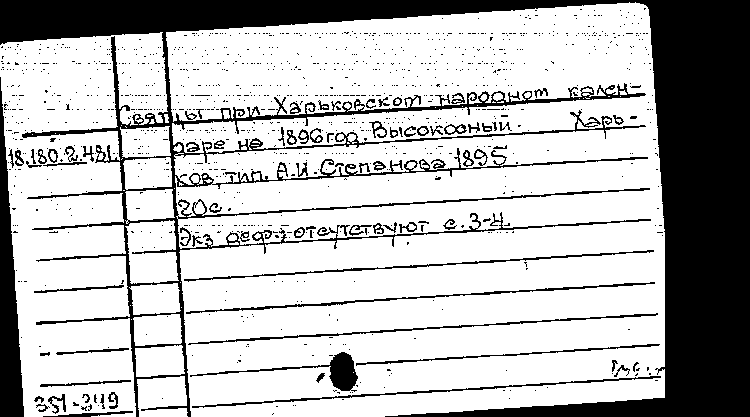 Святцы при Харьковском народном кален-
18.180.2.481. даре на 1896 год. Высокосный. Харь-
ков, тип. А.И. Степанова, 1895
20с.
Экз деф.: отсутствуют с. 3-4.
351-349